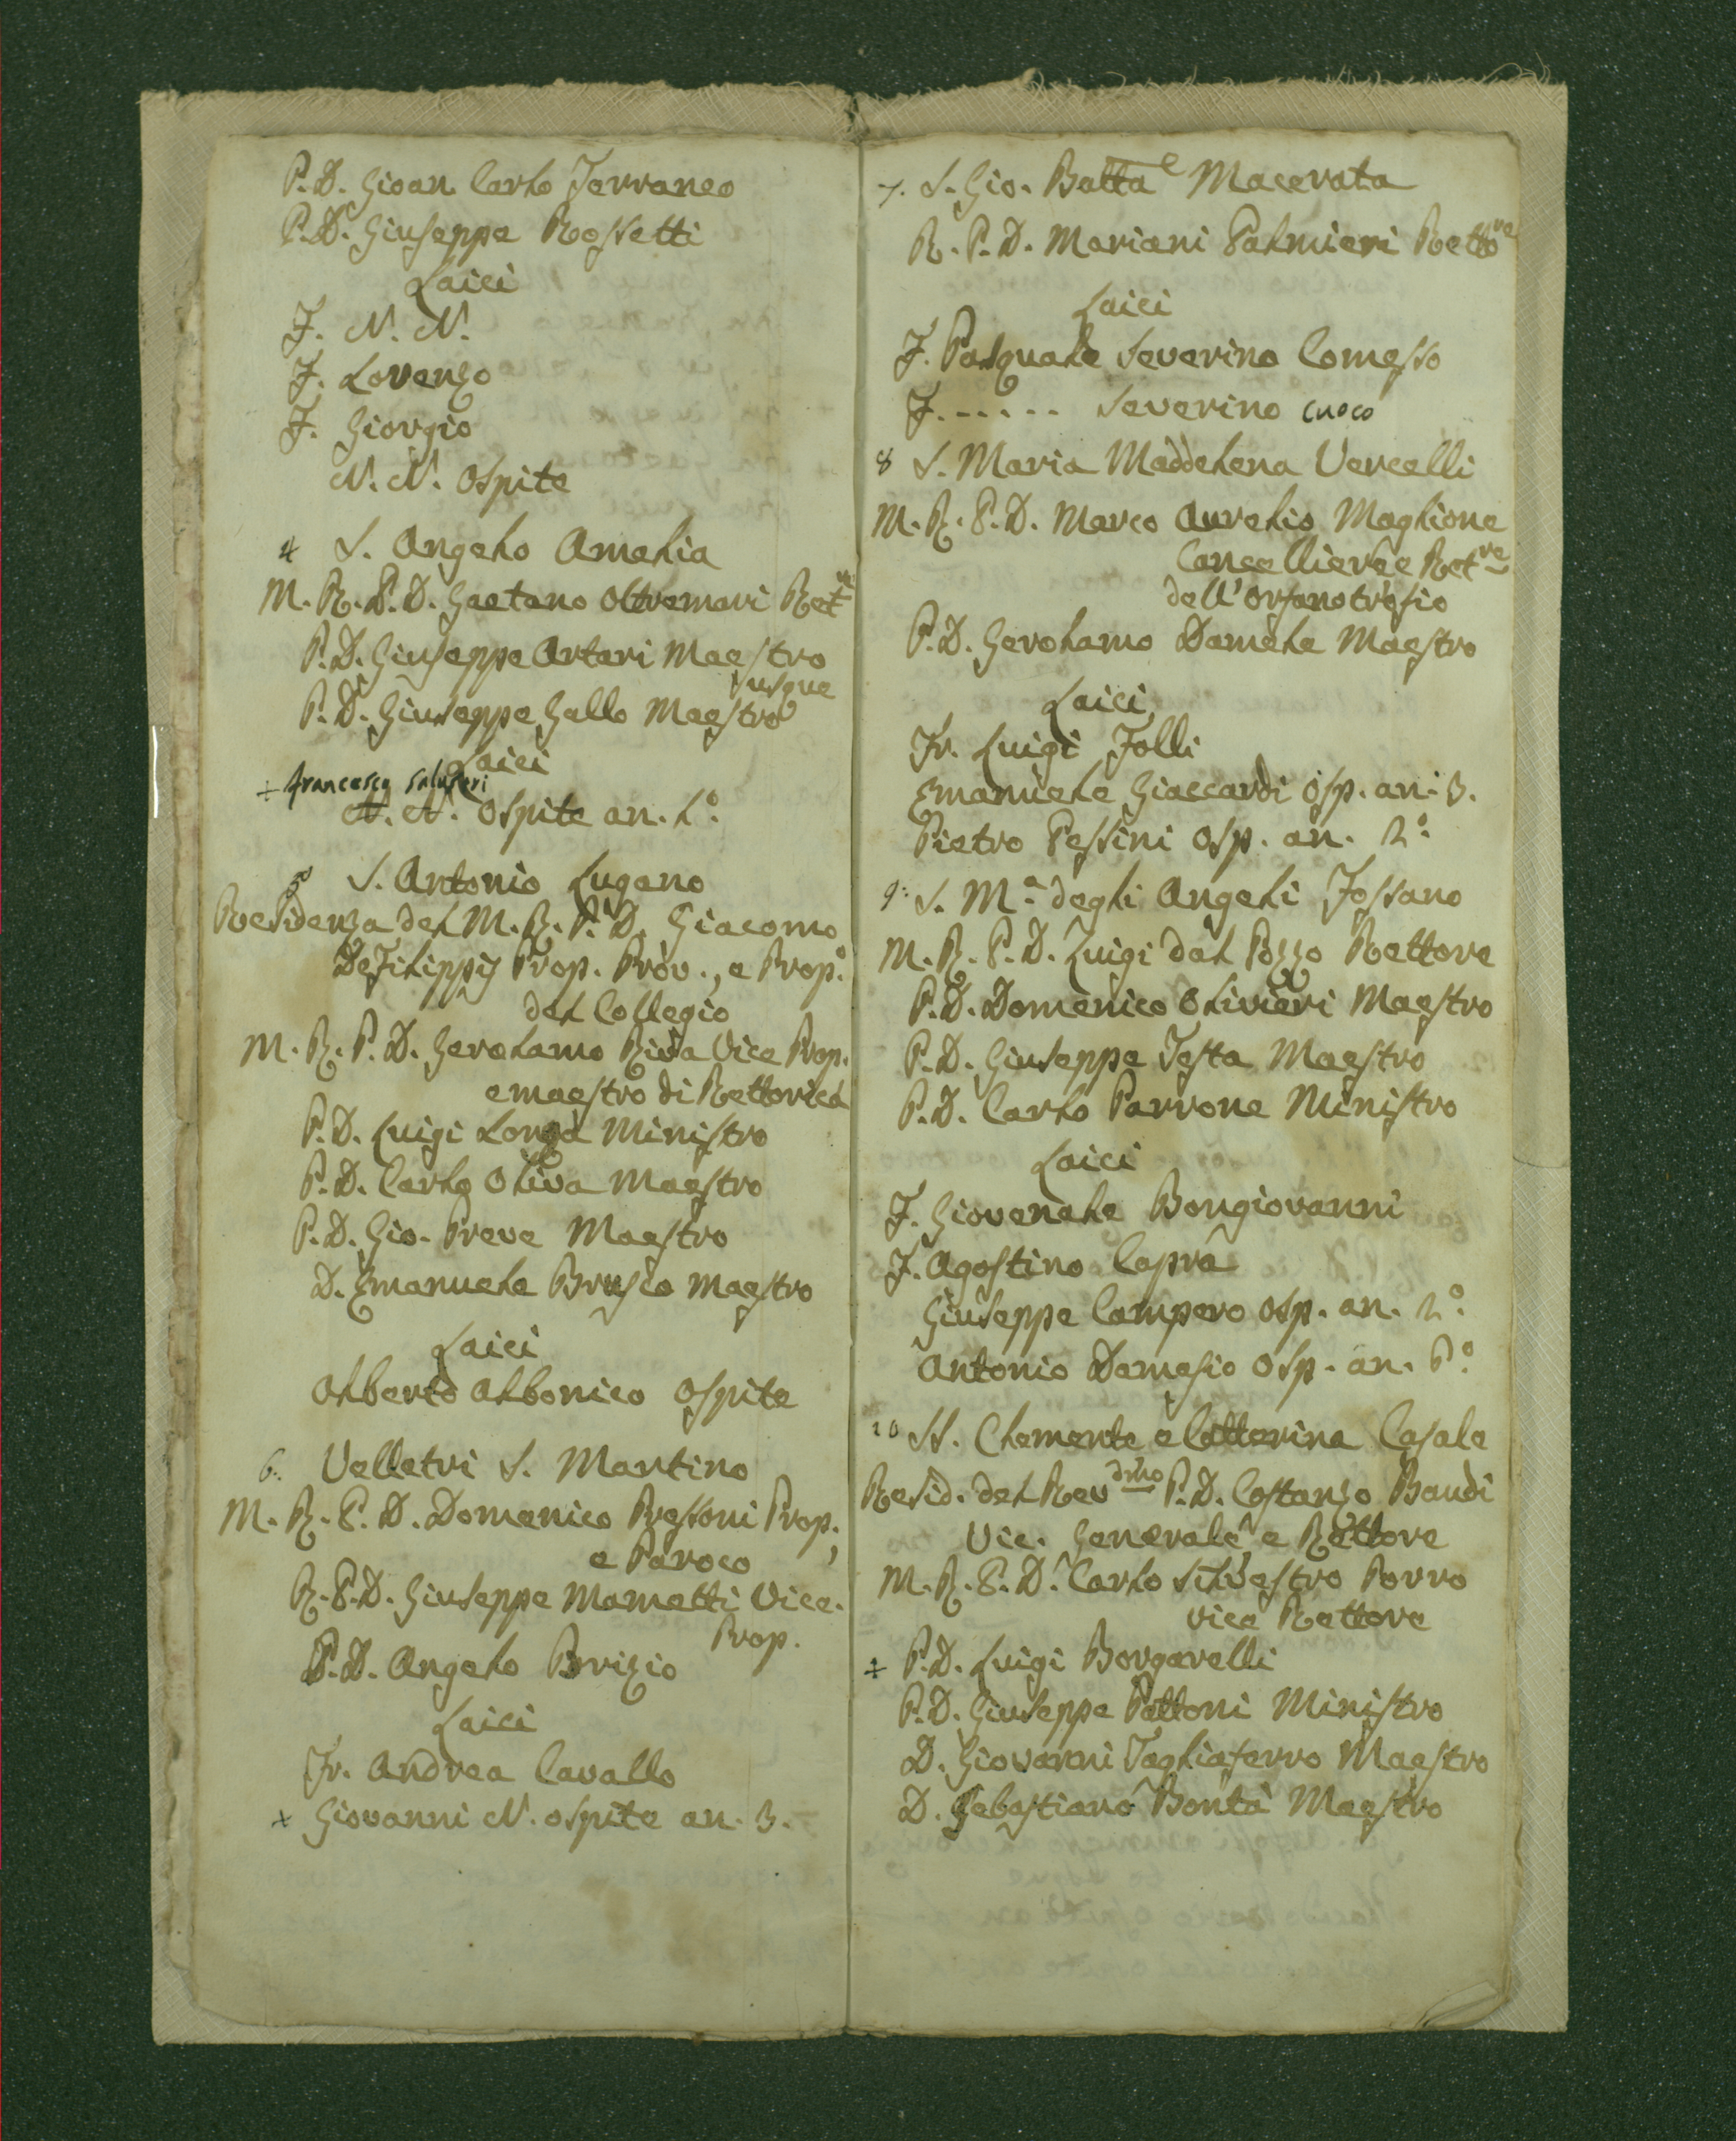 P. D. Gioan Carlo Terraneo
P. D. Giuseppe Rossetti
Laici
F. N. N.
F. Lorenzo
F. Giorgio
N. N. Ospite
4 S. Angelo Amelia
M. R. P. D. Gaetano Oltremari Ret.re
P. D. Giuseppe Artari Maestro
P. D. Giuseppe Gallo Maestro
Laici
+ francesco
N. N. Ospite an. 1.º
5 S. Antonio Lugano
Residenza del M. R. P. D. Giacomo
DeFilippis Prep. Prov., e Prep.º
del Collegio
M. R. P. D. Gerolamo Riva Vice Prep.
e maestro di Rettorica
P. D. Luigi Longa Ministro
P. D. Carlo Oliva Maestro
P. D. Gio. Preve Maestro
D. Emanuele Brusco Maestro
Laici
Alberto Albonico Ospite
6. Velletri S. Martino
M. R. P. D. Domenico Pressoni Prep.,
e Paroco
R. P. D. Giuseppe Mametti Vice-
Prep.
P. D. Angelo Brizio
Laici
Fr. Andrea Cavallo
+ Giovanni N. ospite an. 3.
7. S. Gio. Batta Macerata
R. P. D. Mariani Palmieri Retto.re
Laici
F. Pasquale Severino Comesso
F. ------ Severino cuoco
8 S. Maria Maddelena Vercelli
M. R. P. D. Marco Aurelio Maglione
Cancelliere e Ret.re
dell' Orfanotrofio
P. D. Gerolamo Damele Maestro
Laici
Fr. Luigi Folli
Emanuele Giaccardi Osp. an. 3.
Pietro Pessini Osp. an. 2.º
9. S. M.a degli Angeli Fossano
M. R. P. D. Luigi dal Pozzo Rettore
P. D. Domenico Olivieri Maestro
P. D. Giuseppe Testa Maestro
P. D. Carlo Parrone Ministro
Laici
F. Giovenale Bongiovanni
F. Agostino Capra
Giuseppe Campero Osp. an. 2.º
Antonio Demesio Osp. an. P.º
10 SS. Clemente e Catterina Casale
Resid. del Rev.dmo P. D. Costanzo Baudi
Vic. Generale e Rettore
M. R. P. D. Carlo Silvestro Porro
Vice Rettore
+ P. D. Luigi Borgarelli
P. D. Giuseppe Pattoni Ministro
D. Giovanni Tagliaferro Maestro
D. Sebastiano Bontà Maestro